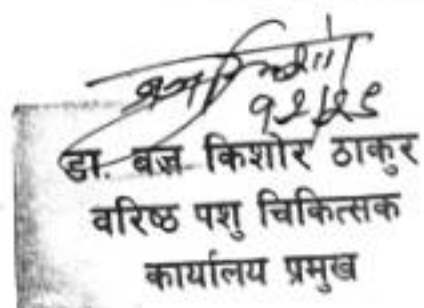 डा. बज्र किशोर ठाकुर
वरिष्ठ पशु चिकित्सक
कार्यालय प्रमुख